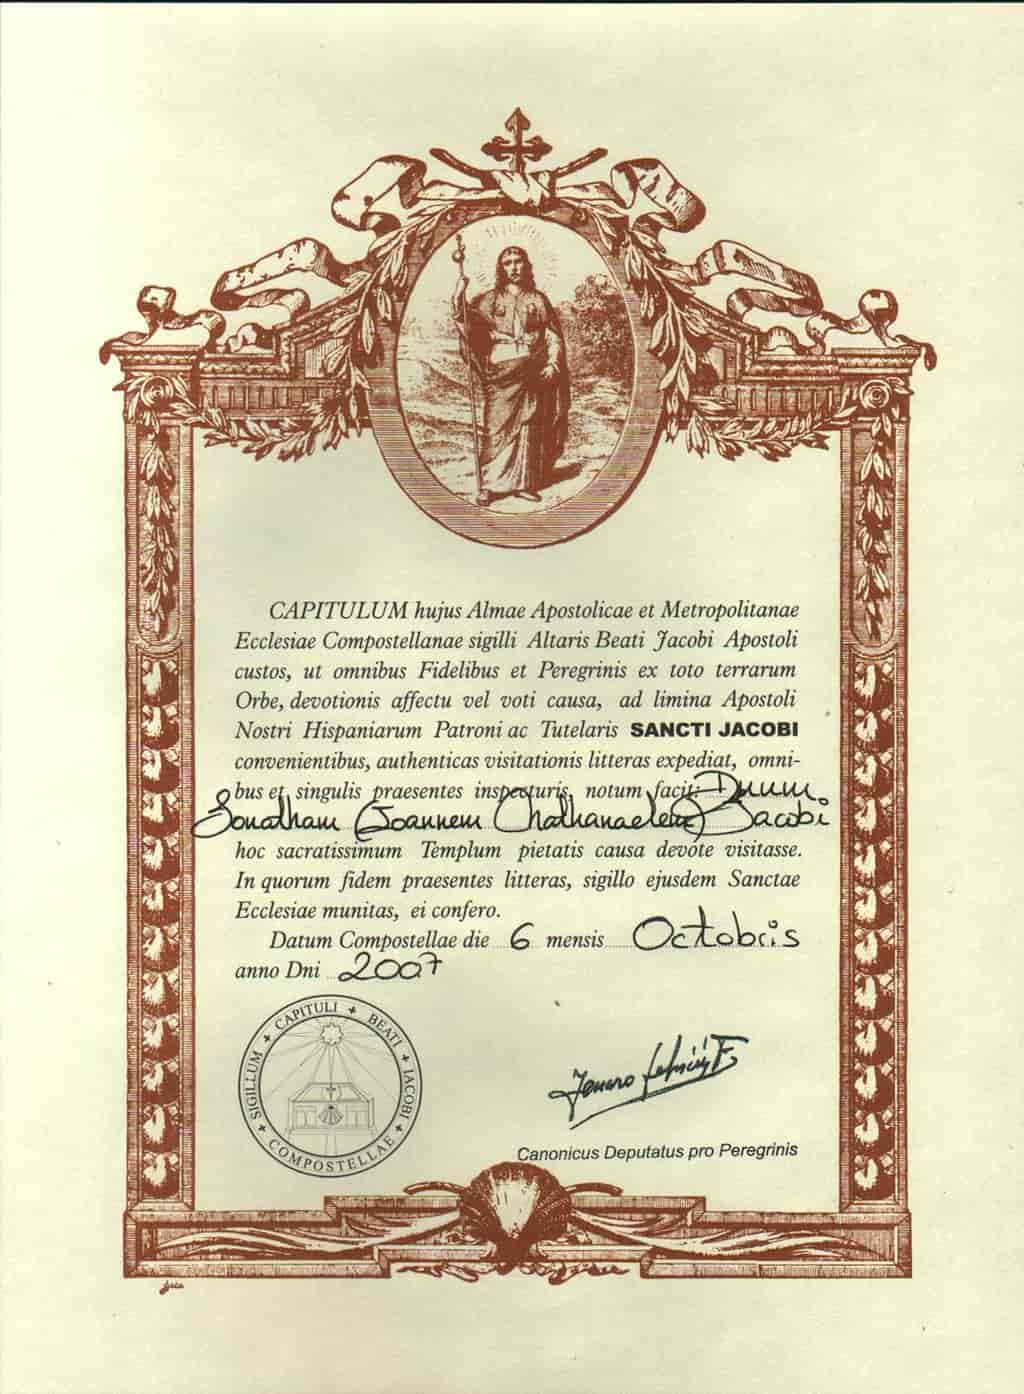 CAPITULUM hujus Almae Apostolicae et Metropolitanae
Ecclesiae Compostellanae sigilli Altaris Beati Jacobi Apostoli
custos, ut omnibus Fidelibus et Peregrinis ex toto terrarum
Orbe, devotionis affectu vel voti causa, ad limina Apostoli
Nostri Hispaniarum Patroni ac Tutelaris SANCTI JACOBI
convenientibus, authenticas visitationis litteras expediat, omni-
bus et singulis praesentes inspecturis, notum facit: Dnum
Jonatham (Joannem Jacobi
hoc sacratissimum Templum pietatis causa devote visitasse.
In quorum fidem praesentes litteras, sigillo ejusdem Sanctae
Ecclesiae munitas, ei confero.
Datum Compostellae die 6 mensis Octobris
anno Dni 2007
SIGILLUM + CAPITULI + BEATI + IACOBI + COMPOSTELLAE +
Canonicus Deputatus pro Peregrinis